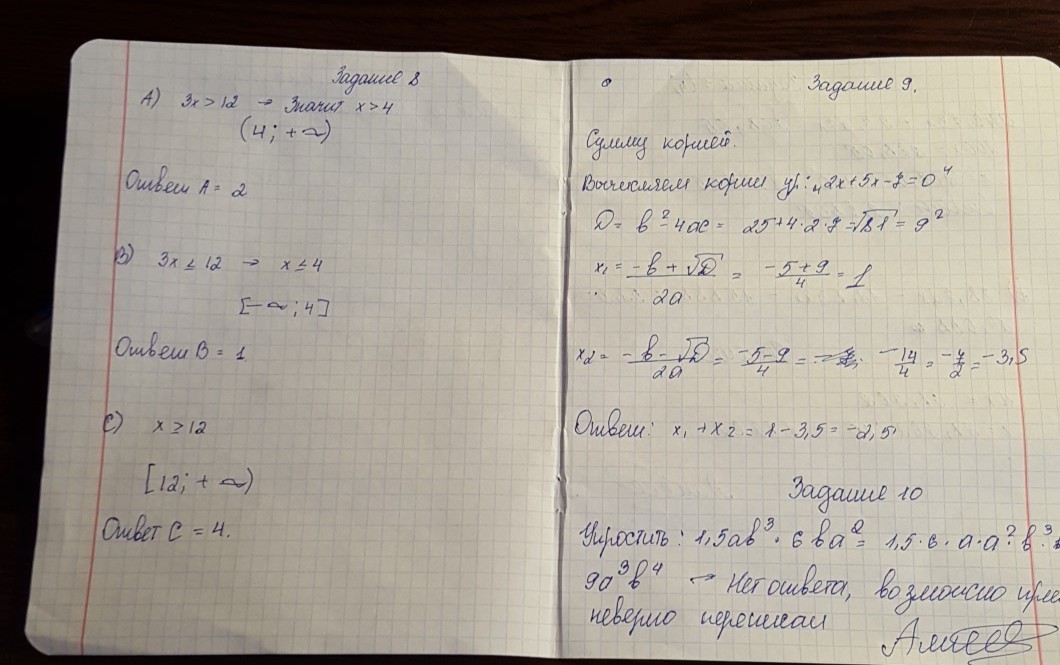 Задание 8
А) 3x > 12 → Значит x > 4
(4; +∞)
Ответ А = 2
В) 3x ≤ 12 → x ≤ 4
[-∞; 4]
Ответ В = 1
С) x ≥ 12
[12; +∞)
Ответ С = 4.
Задание 9.
Сумму корней.
Вычисляем корни ур: "2x+5x-7=0"
D = b²-4ac = 25+4·2·7=√81 = 9²
x₁ = (-b + √D)/2a = (-5+9)/4 = 1
x₂ = (-b - √D)/2a = (-5-9)/4 = -14/4 = -7/2 = -3,5
Ответ: x₁ + x₂ = 1 - 3,5 = -2,5
Задание 10
Упростить: 1,5ab³ · 6ba² = 1,5·6·a·a²·b³
9a³b⁴ → Нет ответа, возможно
неверно переписан